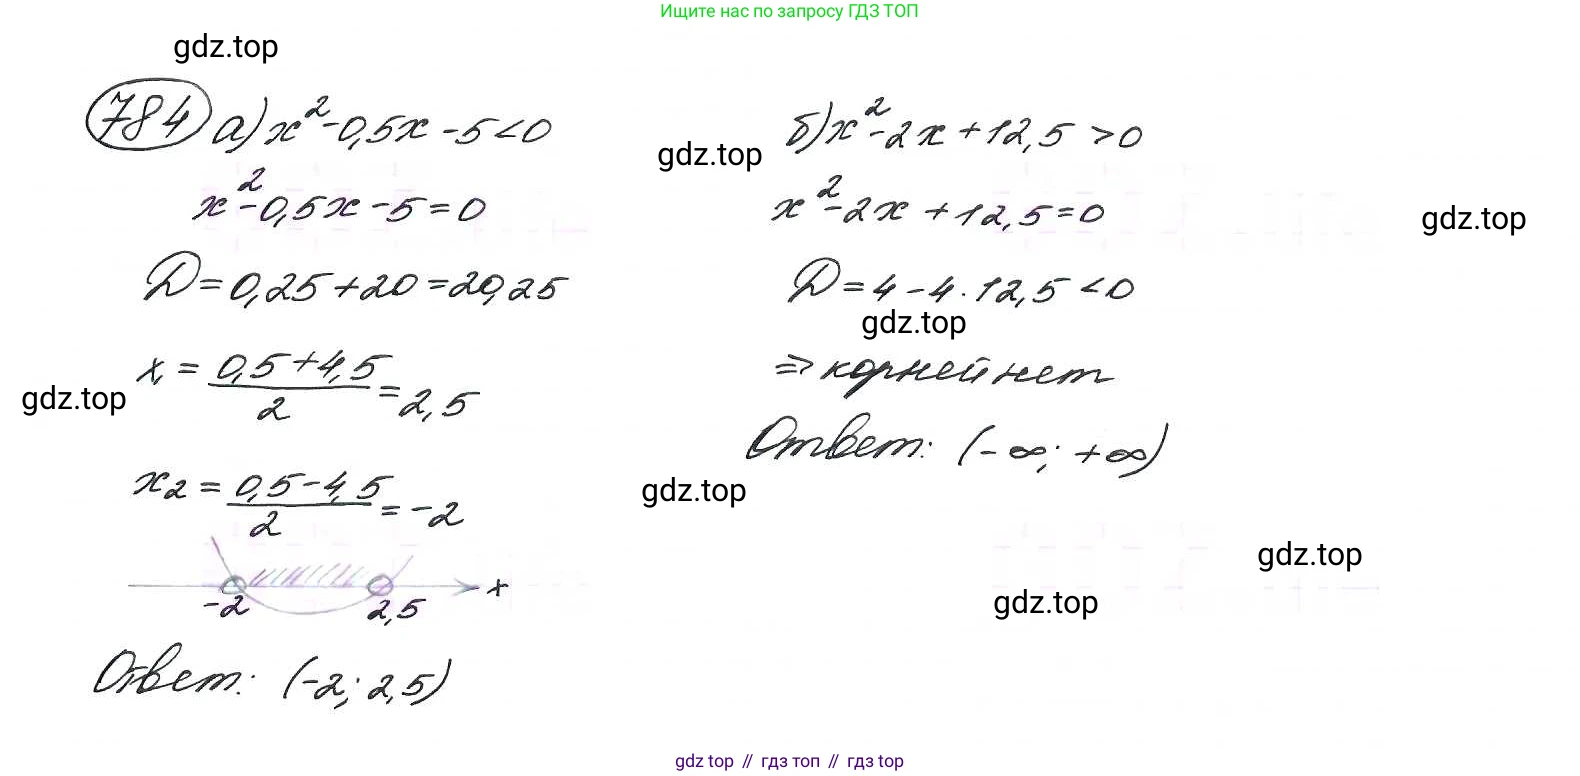 Ищите нас по запросу ГДЗ ТОП
gdz.top
784 а) x² - 0,5x - 5 < 0
x² - 0,5x - 5 = 0
D = 0,25 + 20 = 20,25
x₁ = (0,5 + 4,5)/2 = 2,5
gdz.top
x₂ = (0,5 - 4,5)/2 = -2
-2 2,5 x
Ответ: (-2; 2,5)
gdz.top
б) x² - 2x + 12,5 > 0
x² - 2x + 12,5 = 0
gdz.top
D = 4 - 4 · 12,5 < 0
gdz.top
⇒ корней нет
Ответ: (-∞; +∞)
gdz.top
gdz.top
gdz.top
gdz top // гдз топ // гдз top